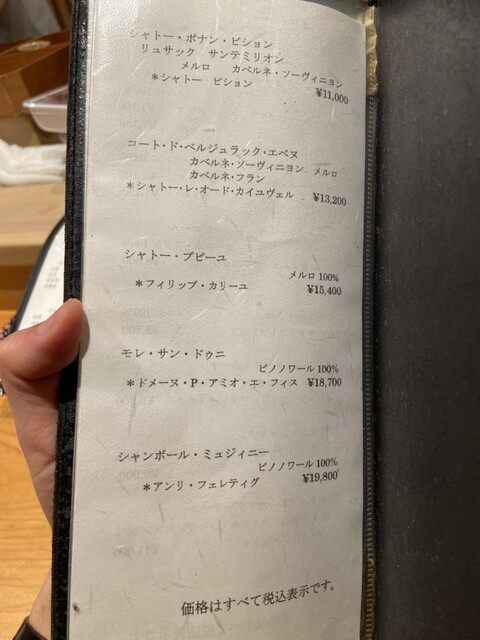 シャトー・ボナン・ピション
リュサック サンテミリオン
メルロ カベルネ・ソーヴィニヨン
＊シャトー ピション ¥11,000
コート・ド・ベルジュラック・エベヌ
カベルネ・ソーヴィニヨン メルロ
カベルネ・フラン
＊シャトー・レ・オード・カイユヴェル ¥13,200
シャトー・プピーユ
メルロ 100%
＊フィリップ・カリーユ ¥15,400
モレ・サン・ドゥニ
ピノノワール 100%
＊ドメーヌ・P・アミオ・エ・フィス ¥18,700
シャンボール・ミュジィニー
ピノノワール 100%
＊アンリ・フェレティグ ¥19,800
価格はすべて税込表示です。